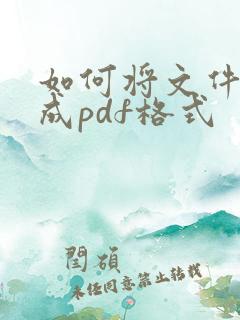 如何将文件
成pdf格式
闫硕
未经同意禁止转载